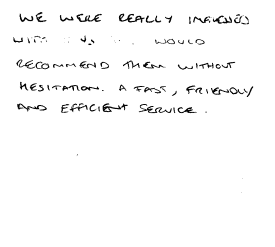 WE WERE REALLY IMPRESSED
WITH WOULD
RECOMMEND THEM WITHOUT
HESITATION. A FAST, FRIENDLY
AND EFFICIENT SERVICE.